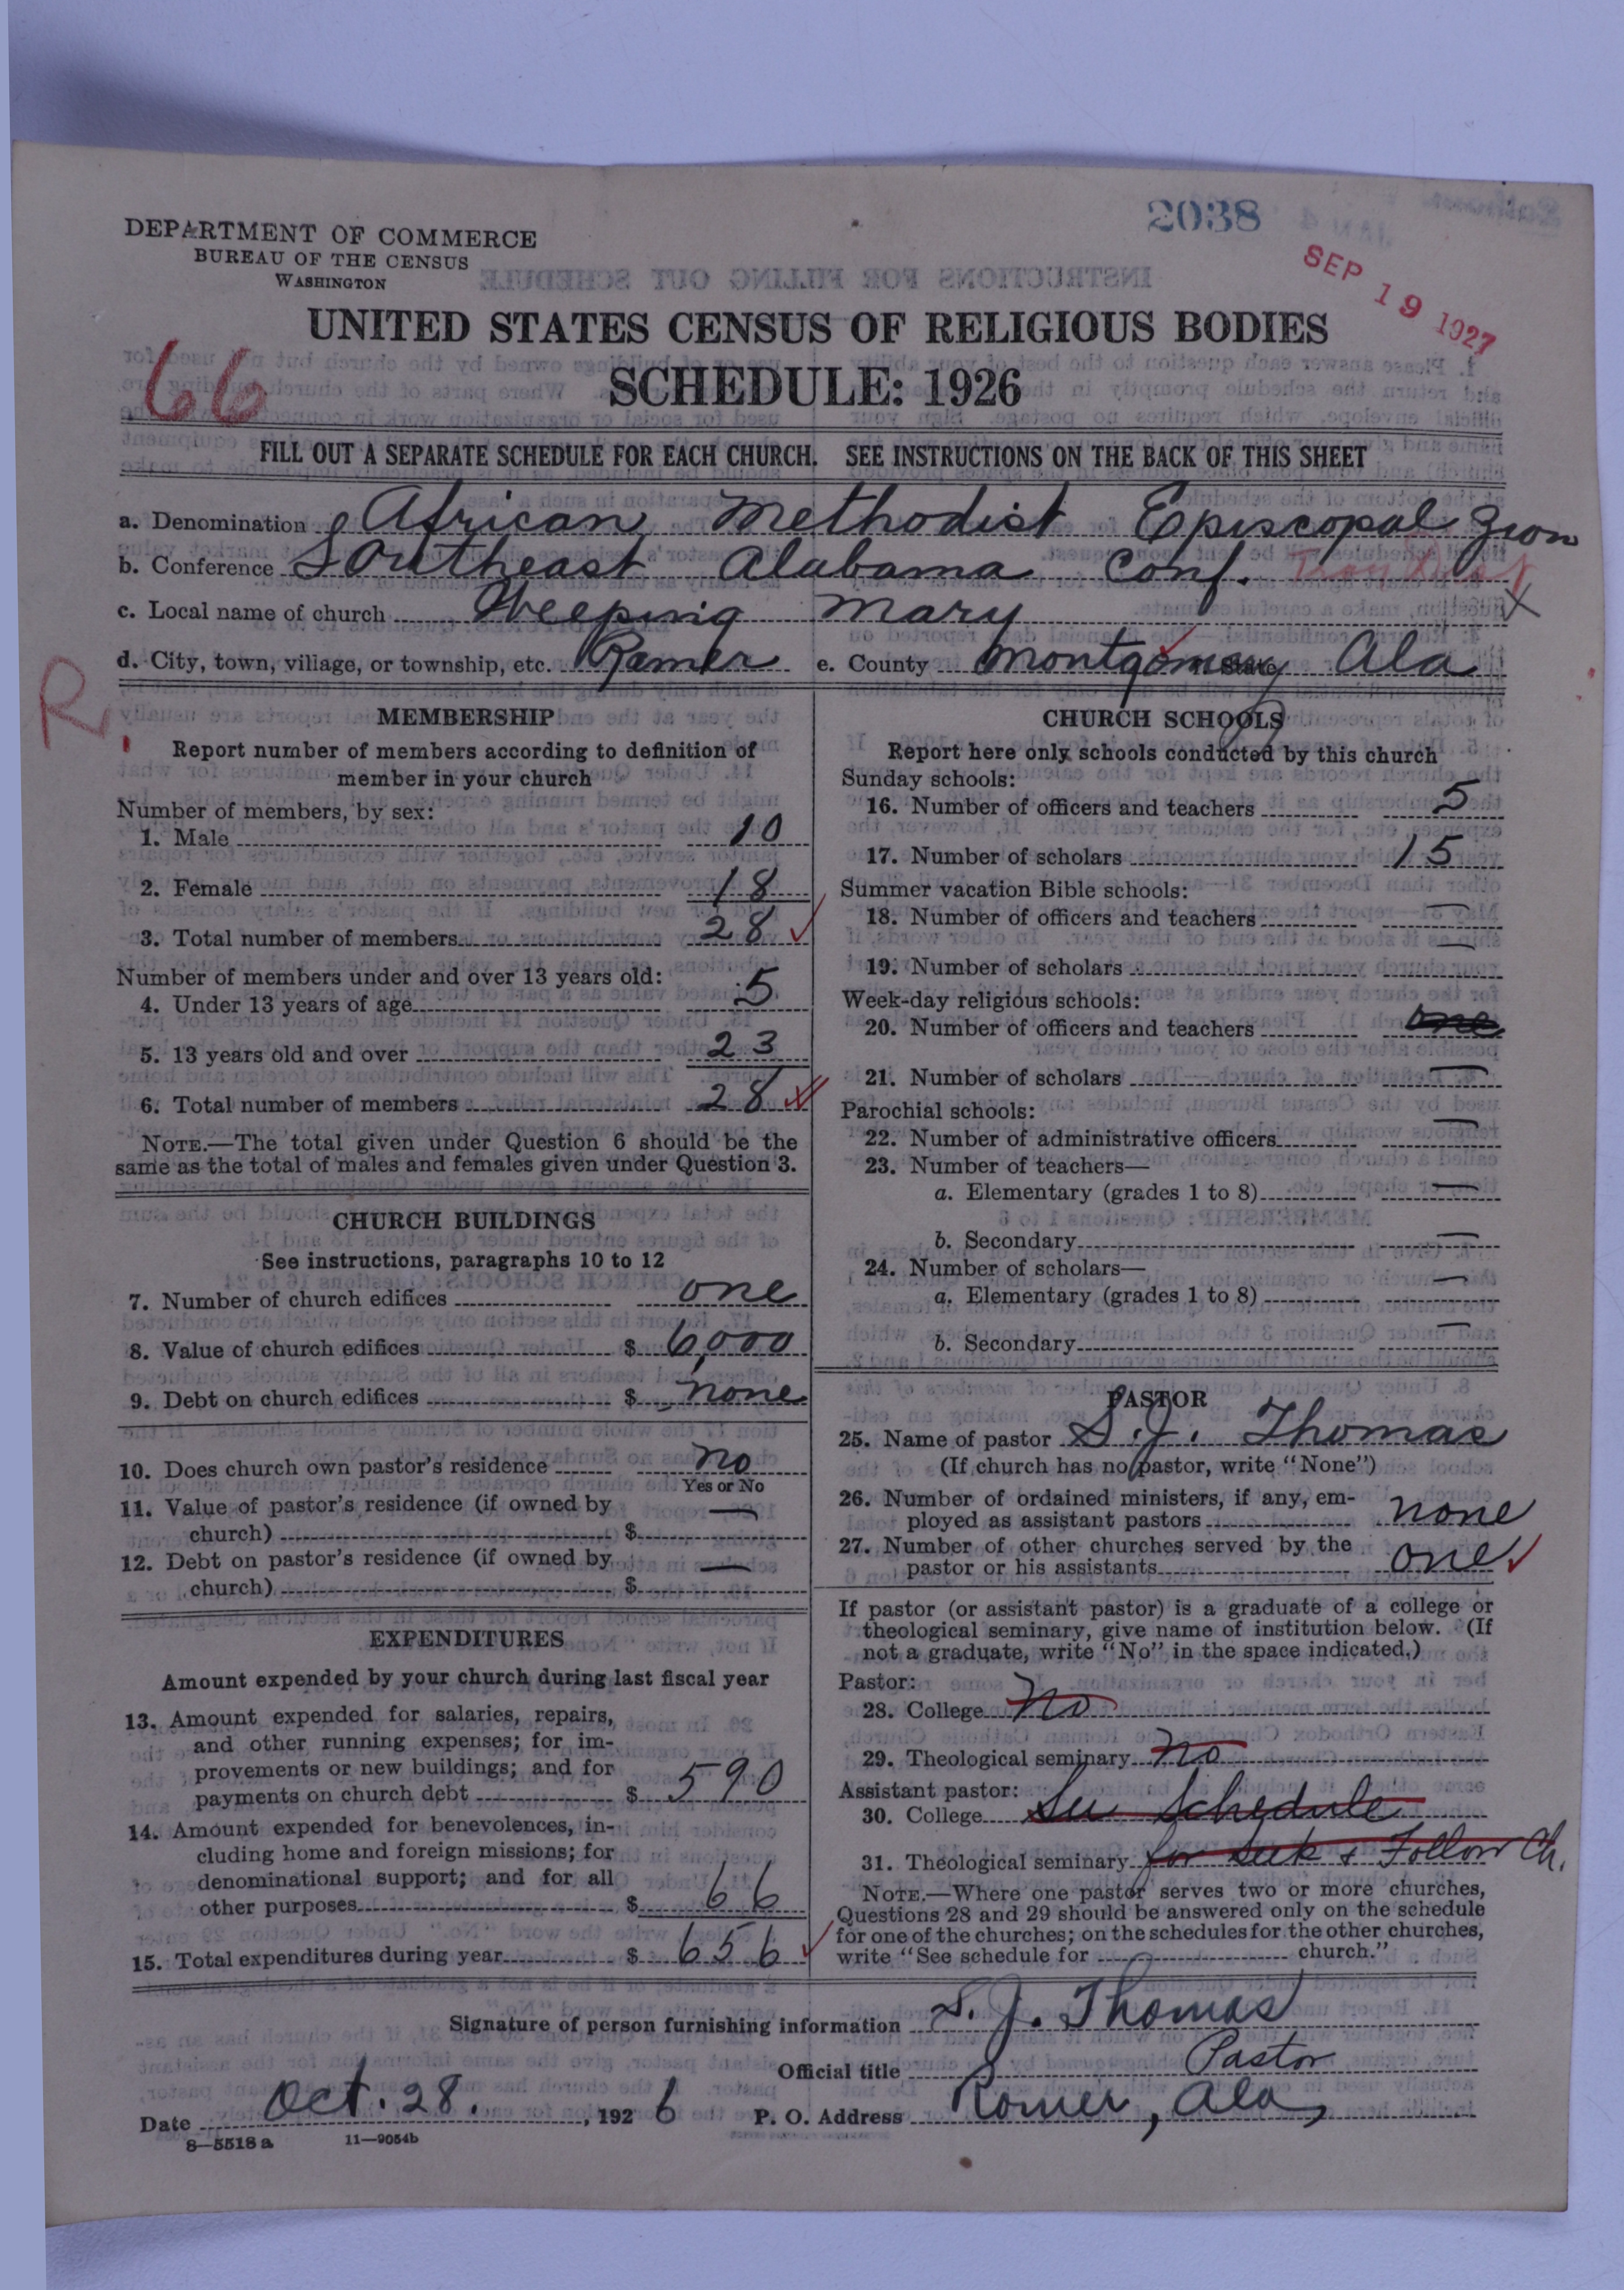 2038
SEP 19 1927
DEPARTMENT OF COMMERCE
BUREAU OF THE CENSUS
WASHINGTON
UNITED STATES CENSUS OF RELIGIOUS BODIES
66
SCHEDULE: 1926
FILL OUT A SEPARATE SCHEDULE FOR EACH CHURCH. SEE INSTRUCTIONS ON THE BACK OF THIS SHEET
a. Denomination African Methodist Episcopal Zion
b. Conference Southeast Alabama Conf. Troy Dist
c. Local name of church Weeping Mary X
d. City, town, village, or township, etc. Ramer e. County Montgomery State Ala
R
MEMBERSHIP
Report number of members according to definition of
member in your church
Number of members, by sex:
1. Male 10
2. Female 18
3. Total number of members 28
Number of members under and over 13 years old:
4. Under 13 years of age 5
5. 13 years old and over 23
6. Total number of members 28
NOTE.—The total given under Question 6 should be the
same as the total of males and females given under Question 3.
CHURCH BUILDINGS
See instructions, paragraphs 10 to 12
7. Number of church edifices one
8. Value of church edifices $ 6,000
9. Debt on church edifices $ none
10. Does church own pastor's residence no
Yes or No
11. Value of pastor's residence (if owned by
church) $ —
12. Debt on pastor's residence (if owned by
church) $ —
EXPENDITURES
Amount expended by your church during last fiscal year
13. Amount expended for salaries, repairs,
and other running expenses; for im-
provements or new buildings; and for
payments on church debt $ 590
14. Amount expended for benevolences, in-
cluding home and foreign missions; for
denominational support; and for all
other purposes $ 66
15. Total expenditures during year $ 656
CHURCH SCHOOLS
Report here only schools conducted by this church
Sunday schools:
16. Number of officers and teachers 5
17. Number of scholars 15
Summer vacation Bible schools:
18. Number of officers and teachers —
19. Number of scholars —
Week-day religious schools:
20. Number of officers and teachers one
21. Number of scholars —
Parochial schools:
22. Number of administrative officers —
23. Number of teachers—
a. Elementary (grades 1 to 8) —
b. Secondary —
24. Number of scholars—
a. Elementary (grades 1 to 8) —
b. Secondary —
PASTOR
25. Name of pastor S. J. Thomas
(If church has no pastor, write "None")
26. Number of ordained ministers, if any, em-
ployed as assistant pastors none
27. Number of other churches served by the
pastor or his assistants one
If pastor (or assistant pastor) is a graduate of a college or
theological seminary, give name of institution below. (If
not a graduate, write "No" in the space indicated.)
Pastor:
28. College no
29. Theological seminary no
Assistant pastor:
30. College See Schedule
31. Theological seminary for Seek & Follow Ch.
NOTE.—Where one pastor serves two or more churches,
Questions 28 and 29 should be answered only on the schedule
for one of the churches; on the schedules for the other churches,
write "See schedule for church."
Signature of person furnishing information S. J. Thomas
Official title Pastor
Date Oct. 28., 1926 P. O. Address Ramer, Ala,
8—5518 a 11—9054b